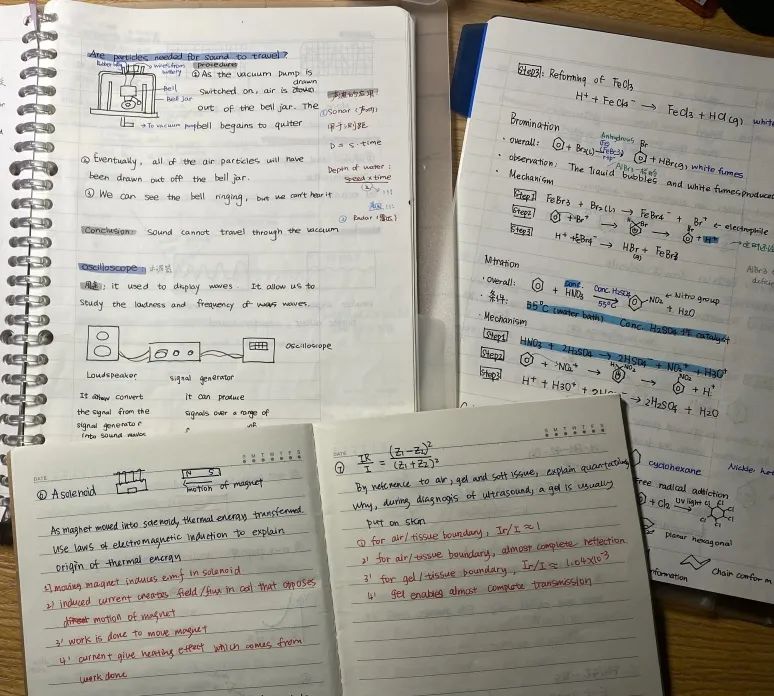 Are particles needed for sound to travel?
Rubber wires from battery
procedure
① As the vacuum pump is
switched on, air is drawn
out of the bell jar. The
bell begains to quiter
Bell
Bell jar
→ To vacuum pump
② Eventually, all of the air particles will have
been drawn out off the bell jar.
③ We can see the bell ringing, but we can't hear it
Conclusion: Sound cannot travel through the vacuum
① Sonar
D = s · time
Depth of water:
speed × time
② Radar
oscilloscope 示波器
用途: it used to display waves. It allow us to
study the loudness and frequency of waves.
oscilloscope
Loudspeaker
signal generator
It convert
the signal from the
signal generator
into sound waves
it can produce
signals over a range of
Step3: Reforming of FeCl3
H⁺ + FeCl4⁻ → FeCl3 + HCl(g), white
Bromination
· overall: + Br2(l) → + HBr(g), white fumes
Anhydrous
Br
· observation: The liquid bubbles and white fumes produced
· Mechanism
Step1 FeBr3 + Br2(l) → FeBr4⁻ + Br⁺ ← electrophile
Step2 + Br⁺ → → + H⁺
Step3 H⁺ + FeBr4⁻ → HBr + FeBr3
(g)
Nitration
· overall: + conc. HNO3 → NO2 ← Nitro group
conc. H2SO4
55°C
+ H2O
· 条件: 55°C (water bath) Conc. H2SO4 作 catalyst
· Mechanism
Step1 HNO3 + 2H2SO4 → 2HSO4⁻ + NO2⁺ + H3O⁺
Step2 + NO2⁺ → → NO2 + H⁺
Step3 H⁺ + H3O⁺ + → 2H2SO4 + H2O
cyclohexane
Nickle
free radical addiction
+ Cl2 UV light Cl
planar hexagonal
Chair conform
DATE
S M T W T F S
⑥ A solenoid
N S
motion of magnet
As magnet moved into soenoid, thermal energy transformed.
Use laws of electromagnetic induction to explain
origin of thermal energy
1) moving magnet induces emf in solenoid
2) induced current creates field/flux in coil that opposes
motion of magnet
3' work is done to move magnet
4' current give heating effect which comes from
work done
DATE
S M T W T F S
⑦ IR/I = (Z1-Z2)²/(Z1+Z2)²
By reference to air, gel and soft issue, explain quantatively
why, during diagnosis of ultrasound, a gel is usually
put on skin
① for air/tissue boundary, Ir/I ≈ 1
2' for air/tissue boundary, almost complete reflection
3' for gel/tissue boundary, Ir/I ≈ 1.04×10⁻³
4' gel enables almost complete transmission